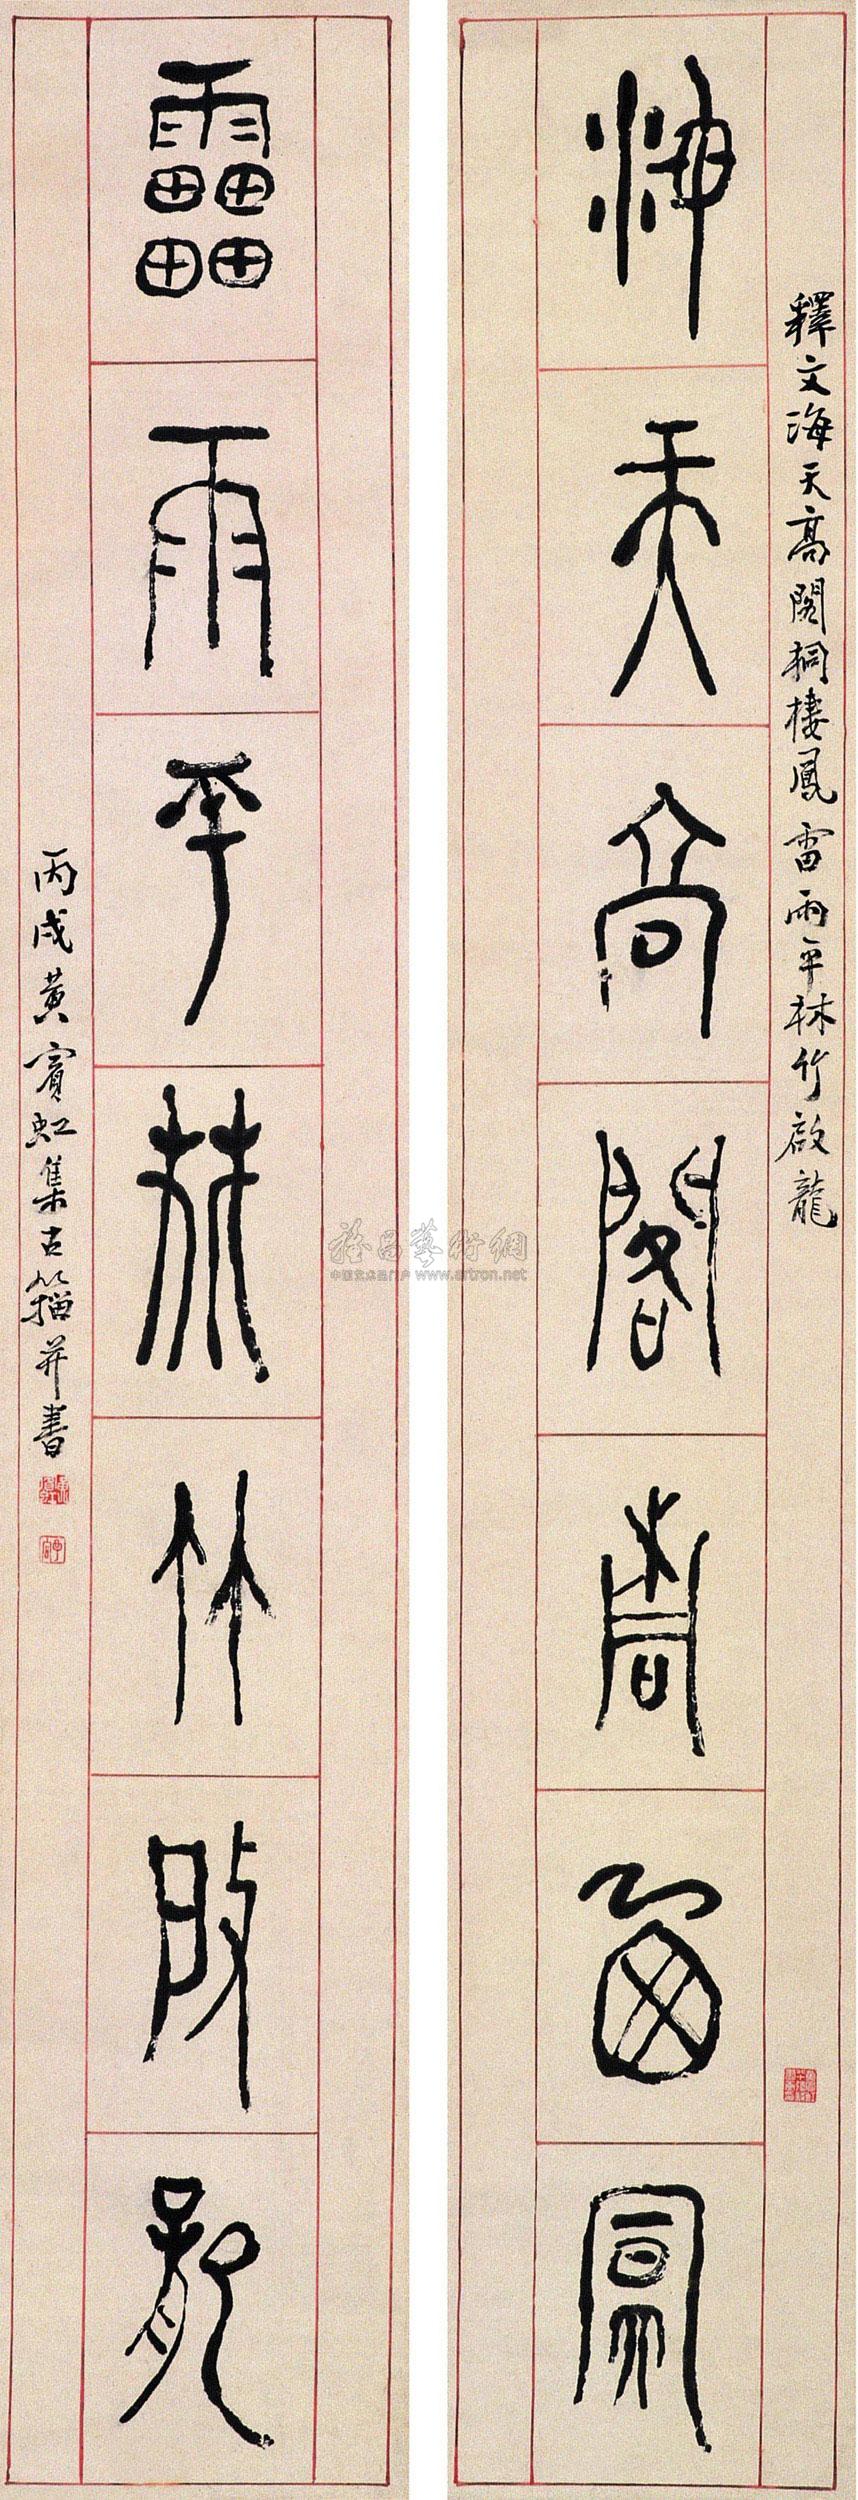 釋文海天高閣桐棲鳳雷雨平林竹啟龍
海天高閣桐棲鳳
雷雨平林竹啟龍
丙戌黃賓虹集古籀并書
雅昌藝術網
中国艺术品门户 www.artron.net